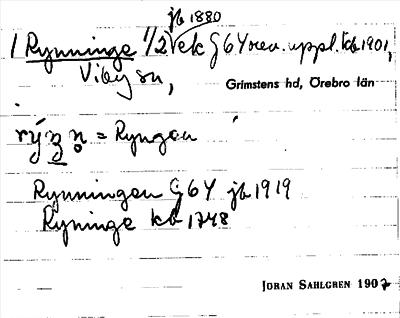 jb 1880
1 Rynninge 1/2 vek G 64 rev. uppl. kb 1901,
Viby sn,
Grimstens hd, Örebro län
= Ryngen
Rynningen G 64 jb 1919
Ryninge kb 1748
JORAN SAHLGREN 1907